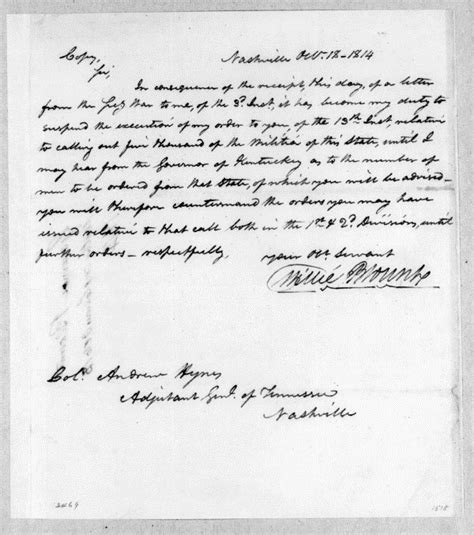 Copy,
Nashville Octr. 18 - 1814
Sir,
In consequence of the receipt, this day, of a letter
from the Secy War to me, of the 3d. Inst, it has become my duty to
suspend the execution of my order to you of the 13th Inst, relative
to calling out five thousand of the Militia of this State, until I
may hear from the Governor of Kentucky as to the number of
men to be ordered from that State, of which you will be advised -
you will therefore countermand the orders you may have
issued relative to that call both in the 1st & 2d. Divisions, until
further orders - respectfully,
your Ob. Servant
Willie Blount
Colo. Andrew Hynes
Adjutant Genl. of Tennessee
Nashville